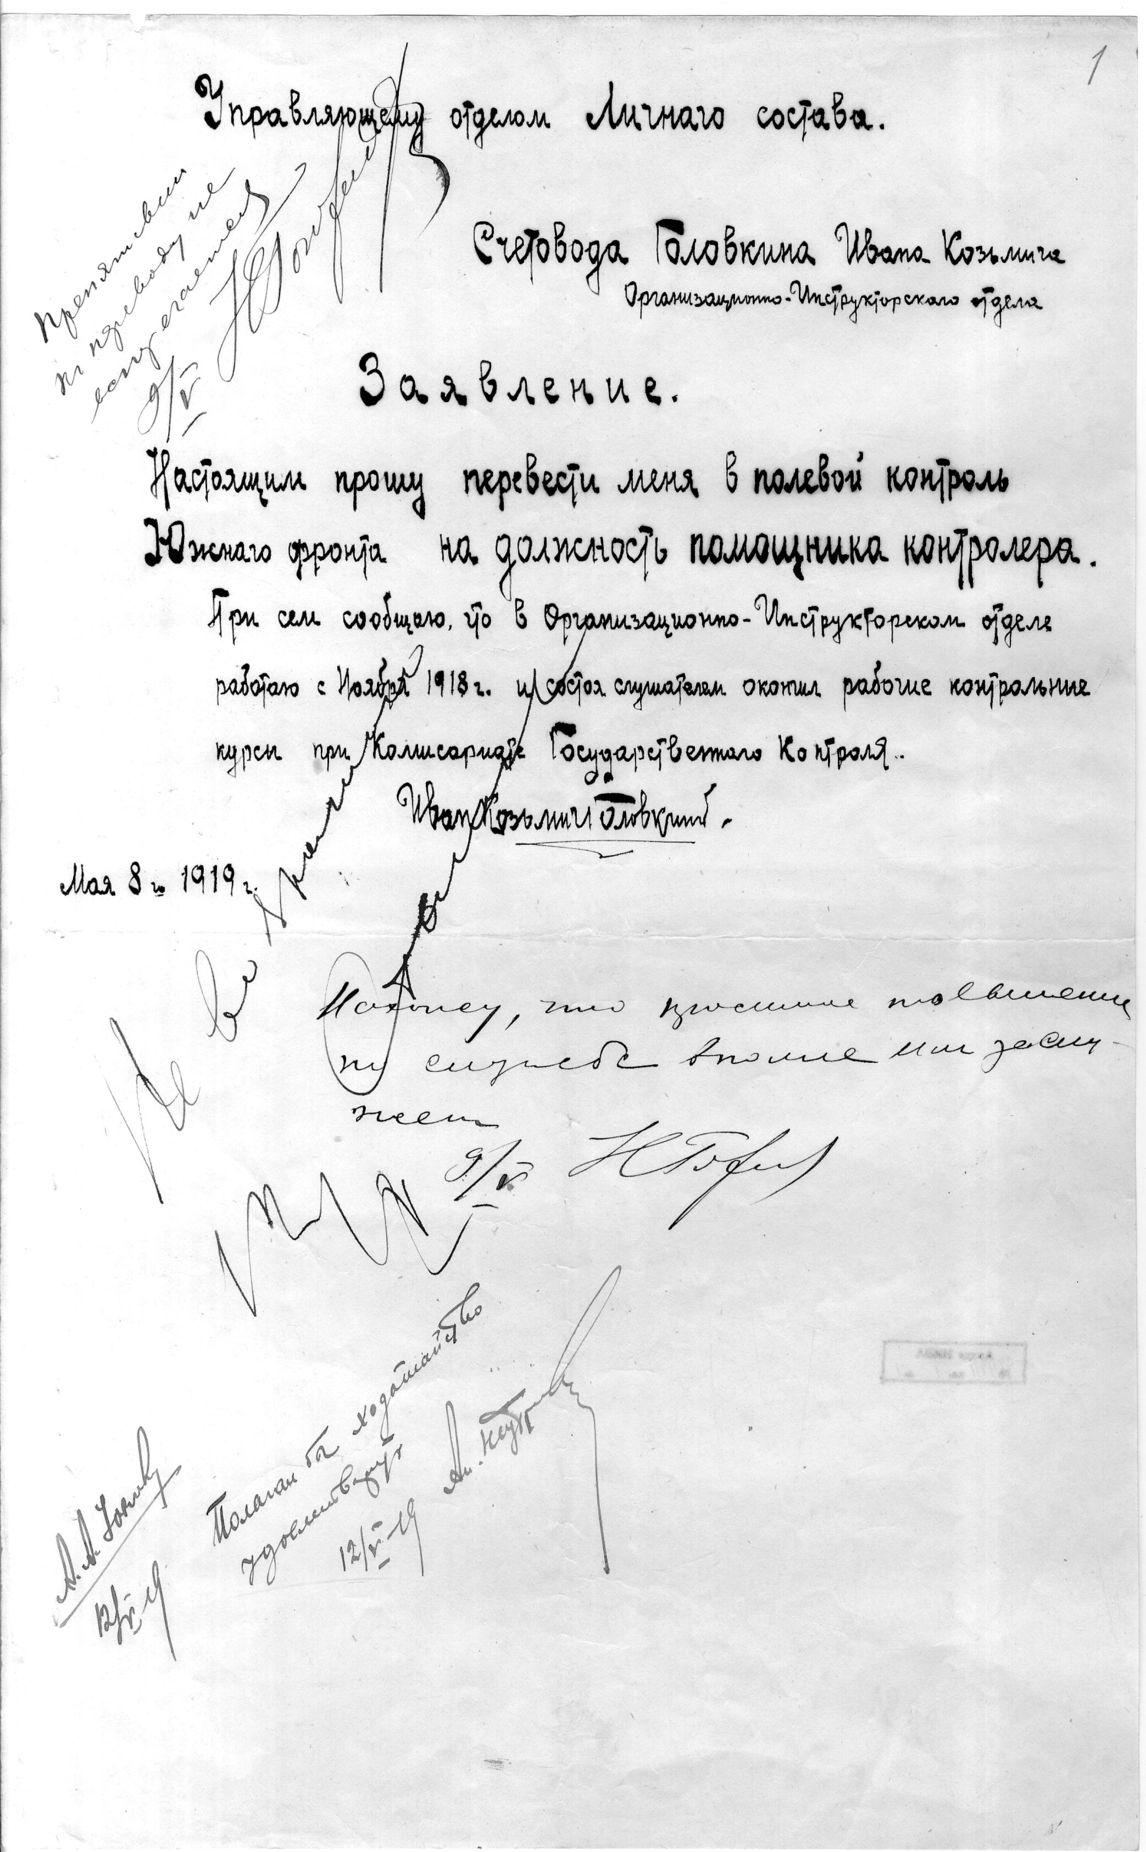 1
Управляющему отделом Личнаго состава.
Препятствий
к переводу не
встречается
9/V
Счетовода Головкина Ивана Козьмича
Организационно-Инструкторскаго отдела
Заявление.
Настоящим прошу перевести меня в полевой контроль
Южнаго фронта на должность помощника контролера.
При сем сообщаю, что в Организационно-Инструкторском отделе
работаю с Ноября 1918 г. и состоя слушателем окончил рабочие контрольные
курсы при Комиссариате Государственнаго Контроля.
Иван Козьмич Головкинъ.
Мая 8 го 1919 г.
Не
Нахожу, что просимое повышение
по службе вполне им заслу-
жен
9/V
Полагал бы ходатайство
удовлетворить
12/V-19
А. А.
12/V 19